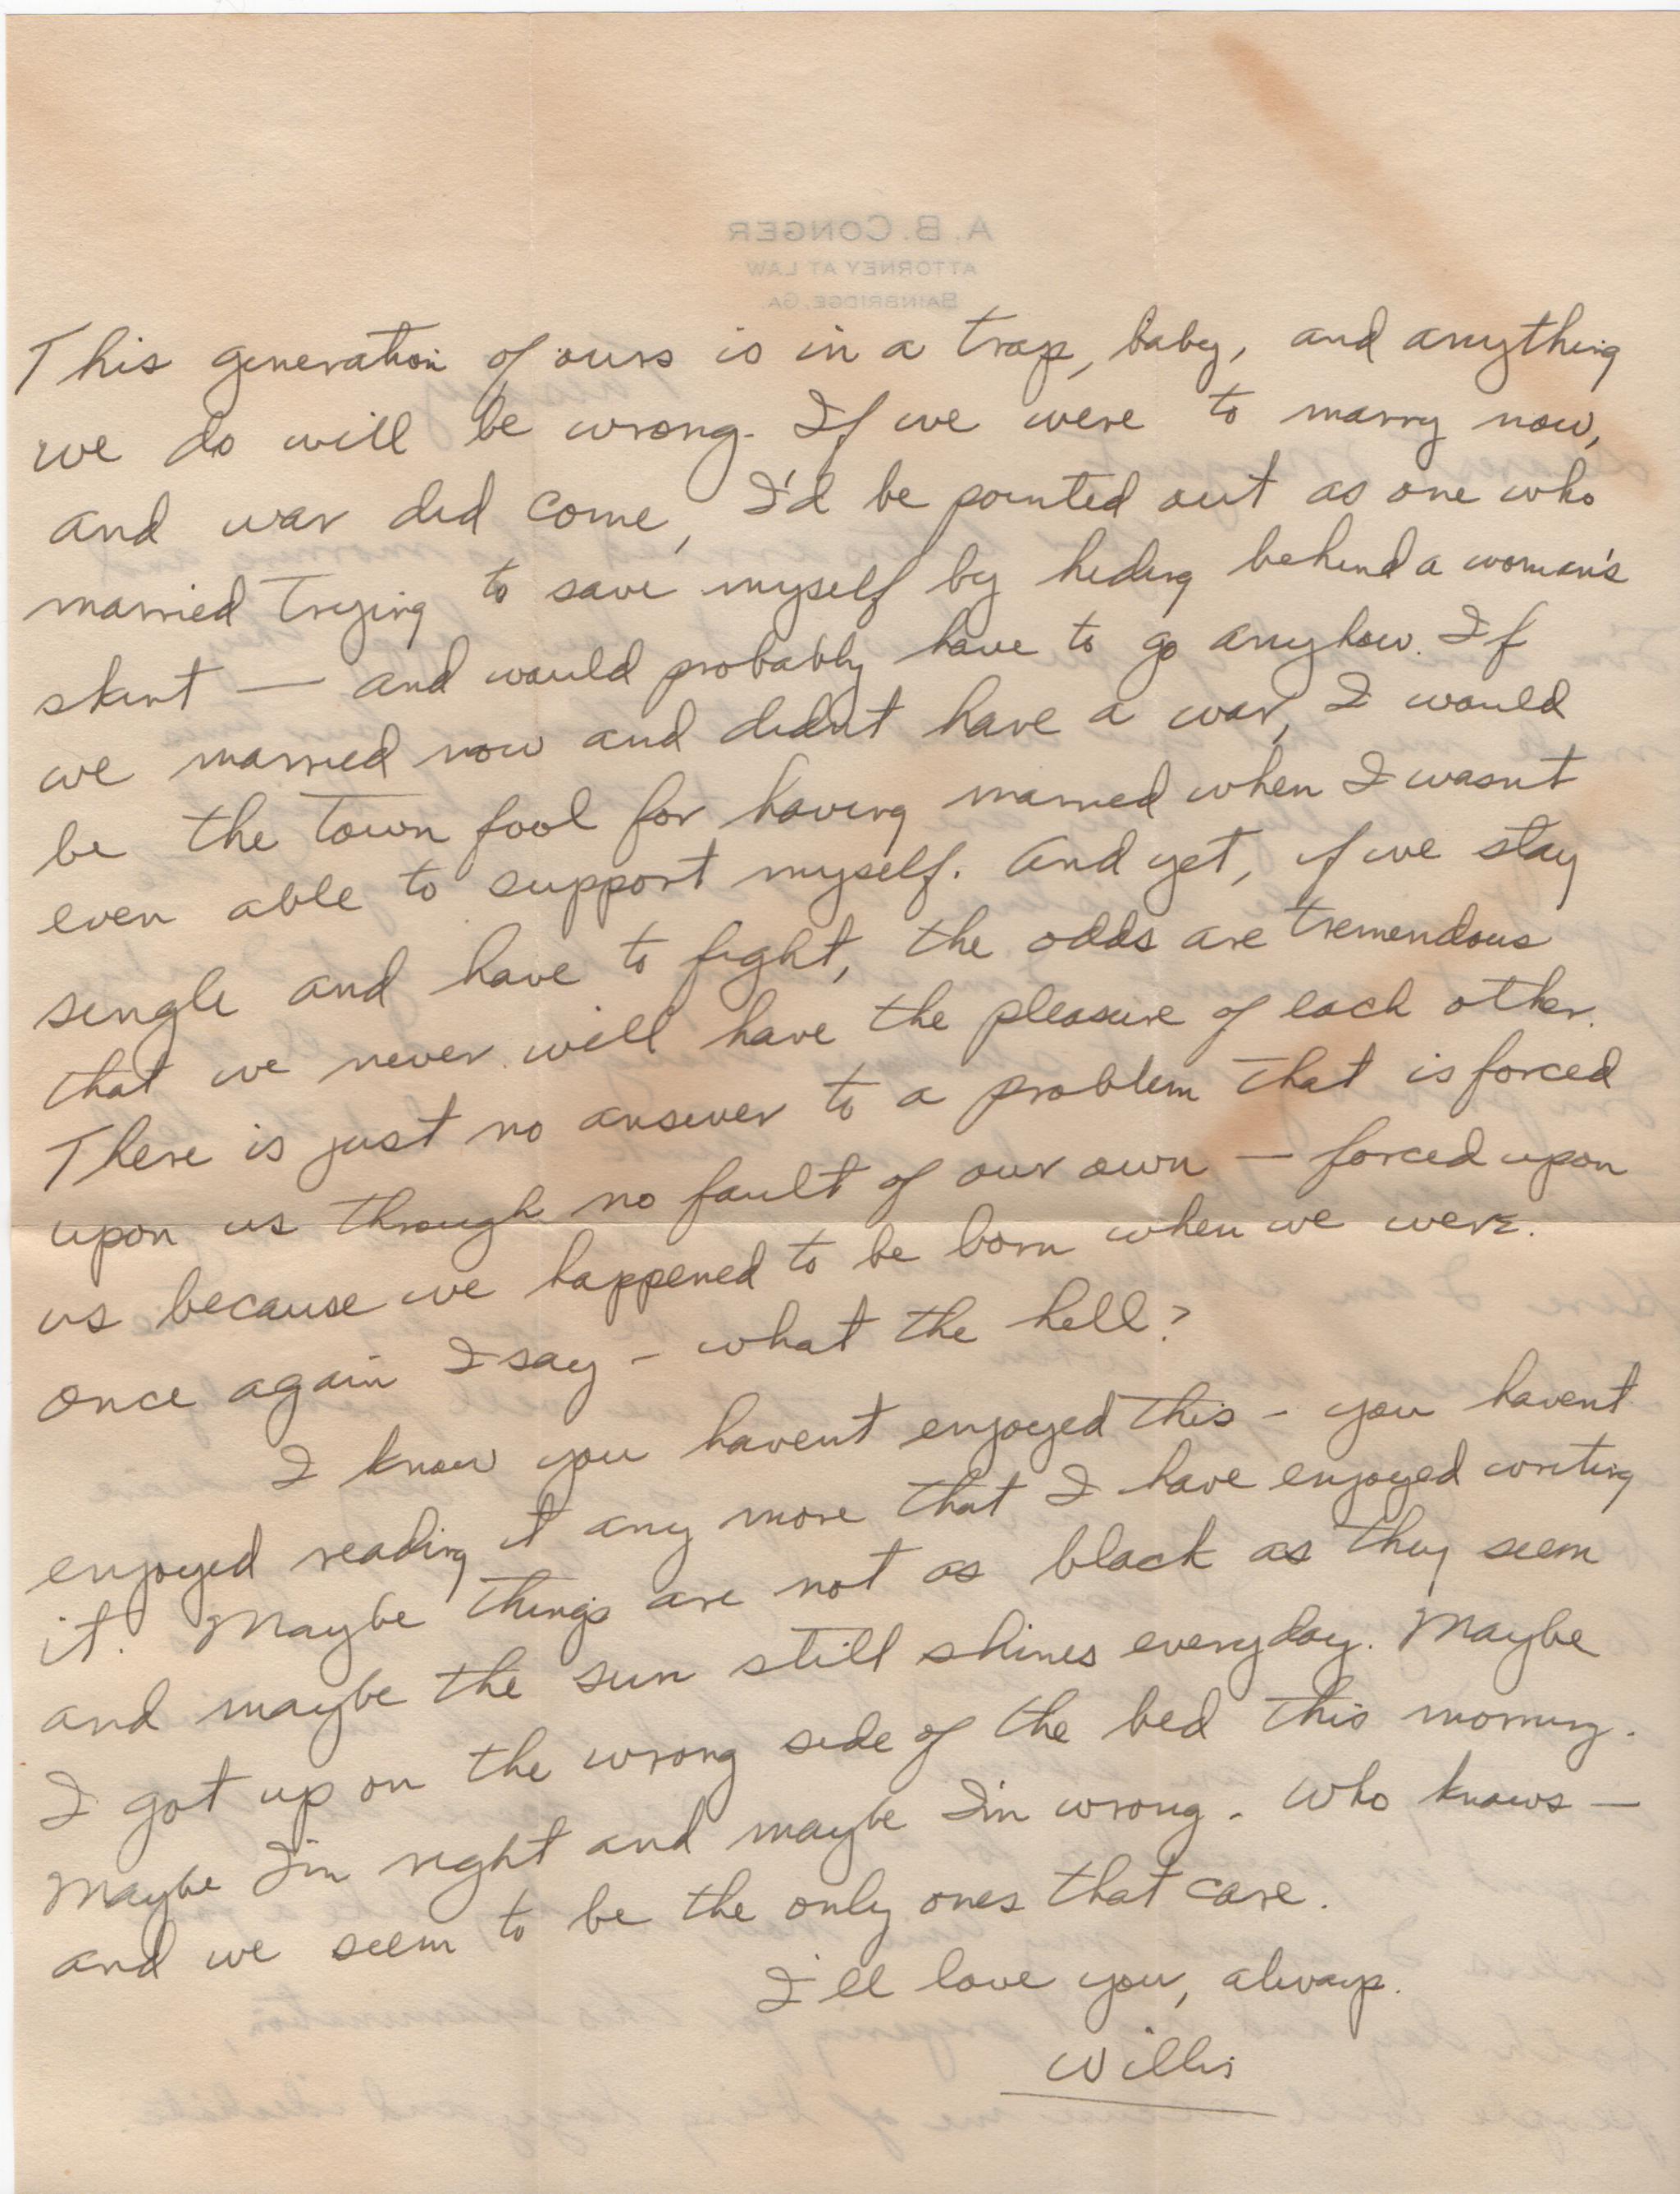 A. B. CONGER
ATTORNEY AT LAW
BAINBRIDGE, GA.
This generation of ours is in a trap, baby, and anything
we do will be wrong. If we were to marry now,
and war did come, I'd be pointed out as one who
married trying to save myself by hiding behind a woman's
skirt — and would probably have to go anyhow. If
we married now and didn't have a war, I would
be the town fool for having married when I wasn't
even able to support myself. And yet, if we stay
single and have to fight, the odds are tremendous
that we never will have the pleasure of each other.
There is just no answer to a problem that is forced
upon us through no fault of our own — forced upon
us because we happened to be born when we were.
Once again I say - what the hell?
I know you havent enjoyed this - you havent
enjoyed reading it any more that I have enjoyed writing
it. Maybe things are not as black as they seem
and maybe the sun still shines everyday. Maybe
I got up on the wrong side of the bed this morning.
Maybe I'm right and maybe I'm wrong. Who knows —
and we seem to be the only ones that care.
I'll love you, always.
Willis